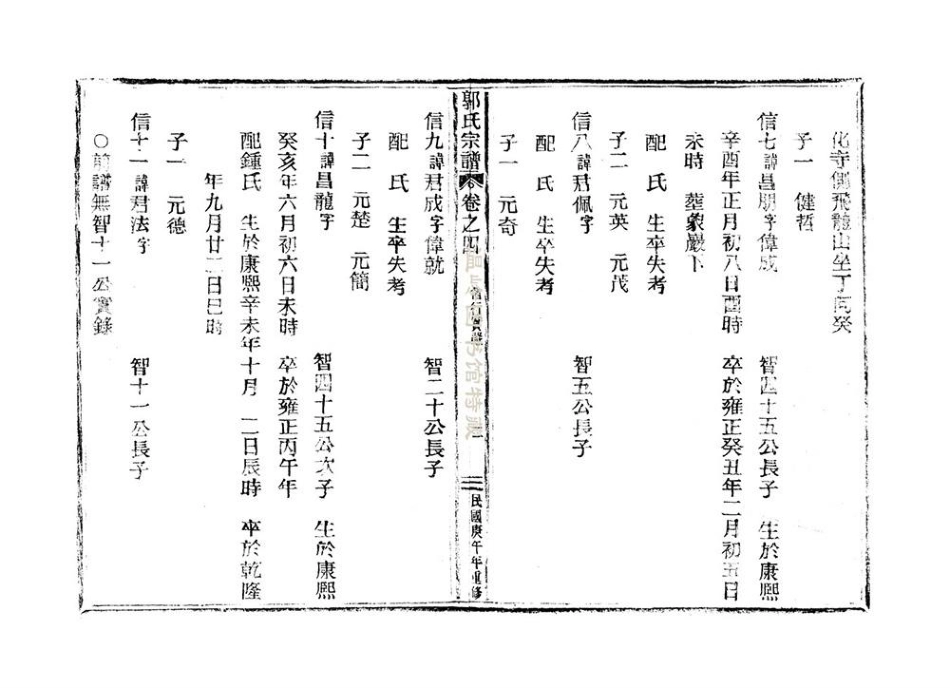 化寺傍飛龍山坐丁向癸
子一 健哲
信七諱昌朋字偉成 智四十五公長子 生於康熙
辛酉年正月初八日酉時 卒於雍正癸丑年二月初五日
未時 葬象巖下
配 氏 生卒失考
子二 元英 元茂
信八諱君佩字 智五公長子
配 氏 生卒失考
子一 元奇
郭氏宗譜 卷之四 三 民國庚午年重修
書馆特藏
信九諱君成字偉就 智二十公長子
配 氏 生卒失考
子二 元楚 元簡
信十諱昌龍字 智四十五公次子 生於康熙
癸亥年六月初六日未時 卒於雍正丙午年
配鍾氏 生於康熙辛未年十月 二日辰時 卒於乾隆
年九月廿二日巳時
子一 元德
信十一諱君法字 智十一公長子
○前譜無智十一公實錄